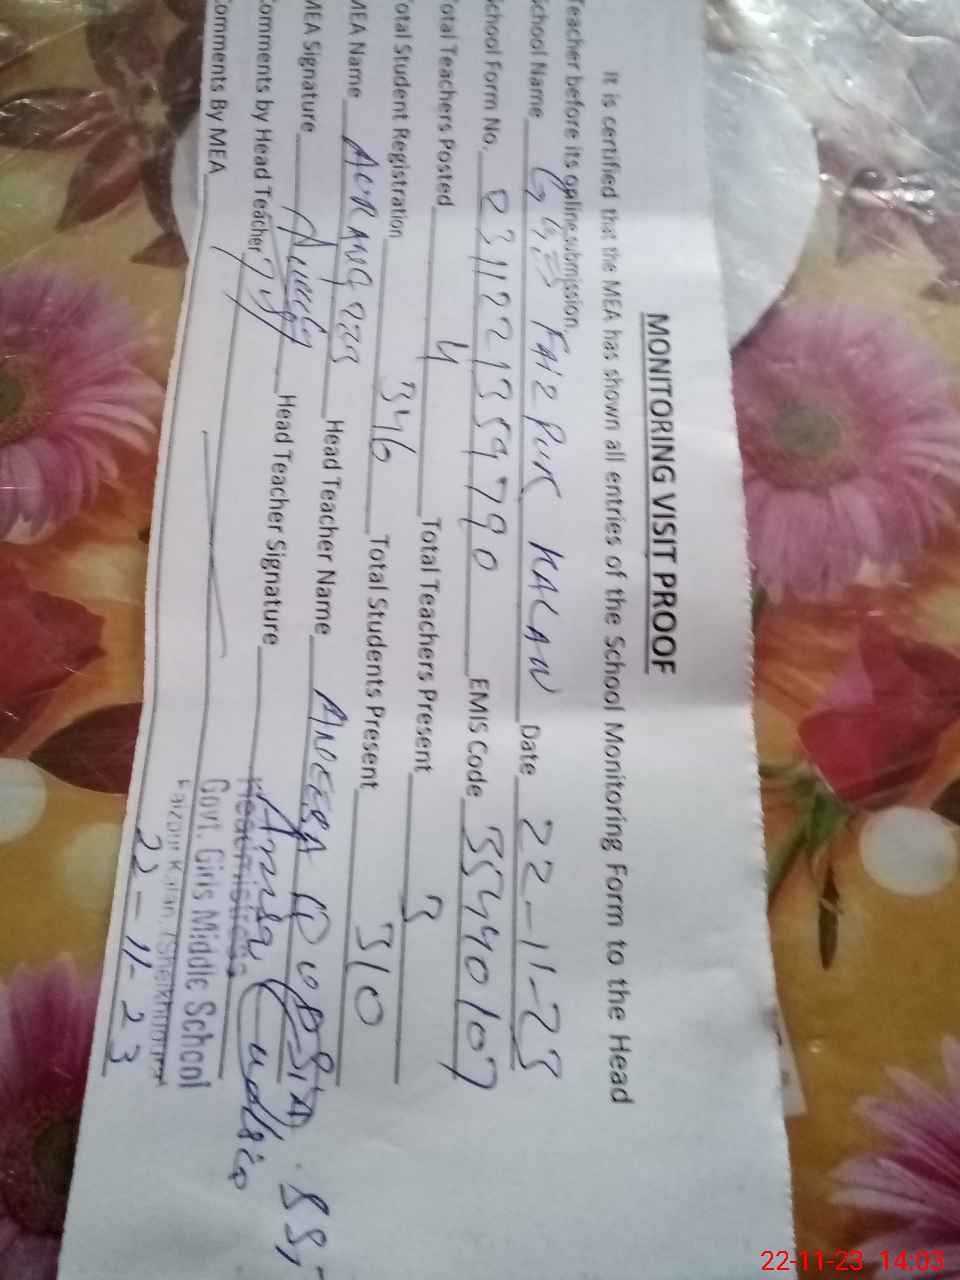 MONITORING VISIT PROOF
It is certified that the MEA has shown all entries of the School Monitoring Form to the Head
Teacher before its online submission.
School Name FAIZ PUR KALAN Date 22-11-23
School Form No. EMIS Code 35440107
Total Teachers Posted 4 Total Teachers Present 3
Total Student Registration 346 Total Students Present 310
MEA Name AURANGZEB Head Teacher Name
MEA Signature Head Teacher Signature
Comments by Head Teacher
Headmistress
Comments By MEA
Govt. Girls Middle School
Faizpur Kalan, (Sheikhupura)
22-11-23
22-11-23 14:03